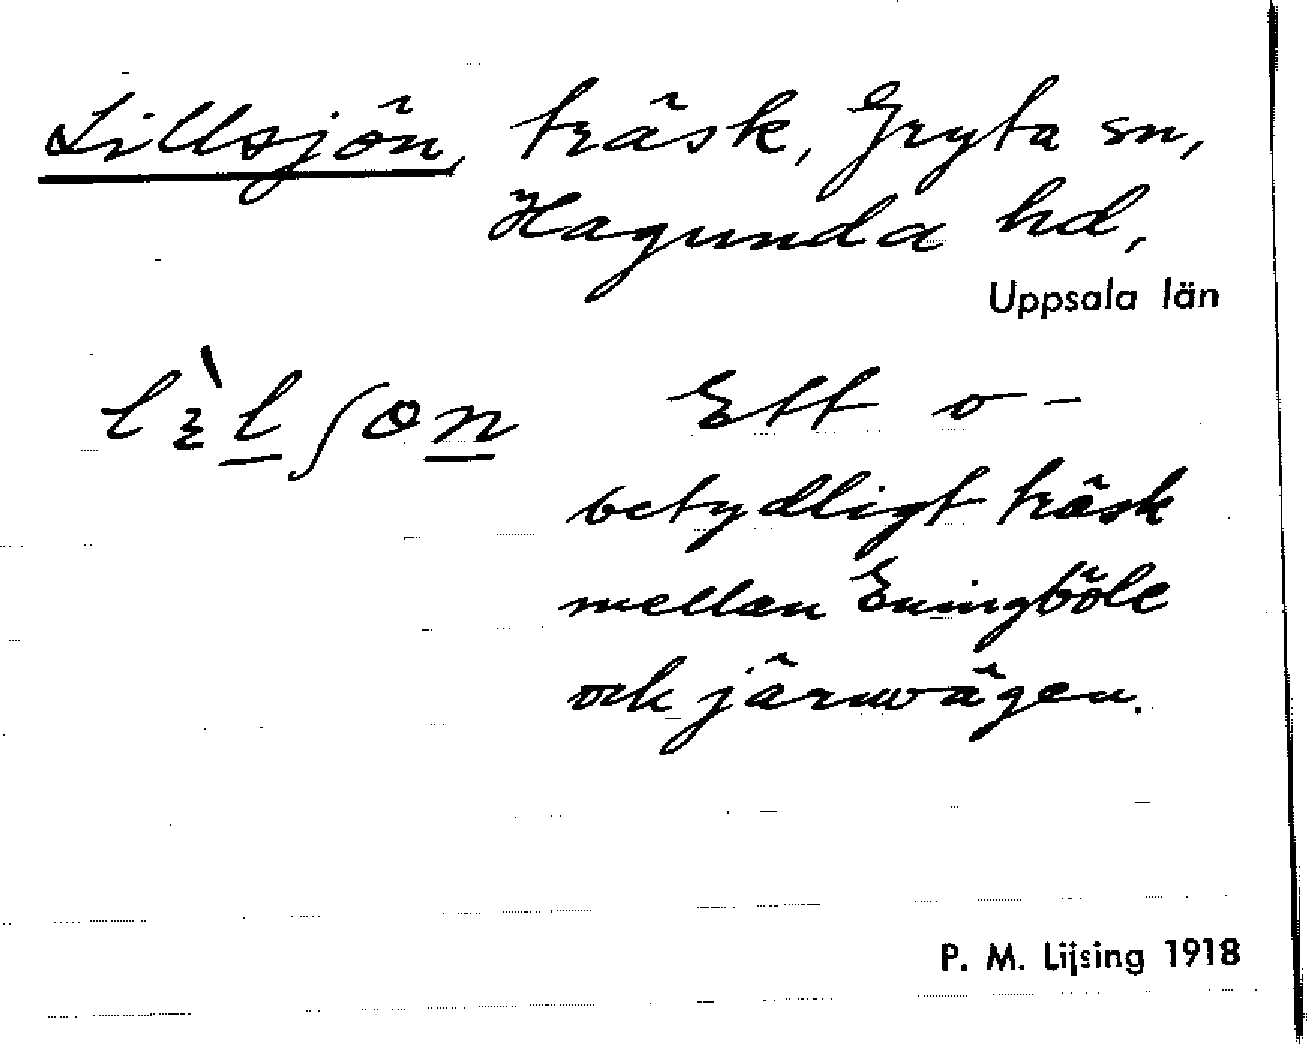 Lillsjön, träsk, Gryta sn,
Hagunda hd,
Uppsala län
Ett o-
betydligt träsk
mellan Eningböle
och järnvägen.
P. M. Lijsing 1918